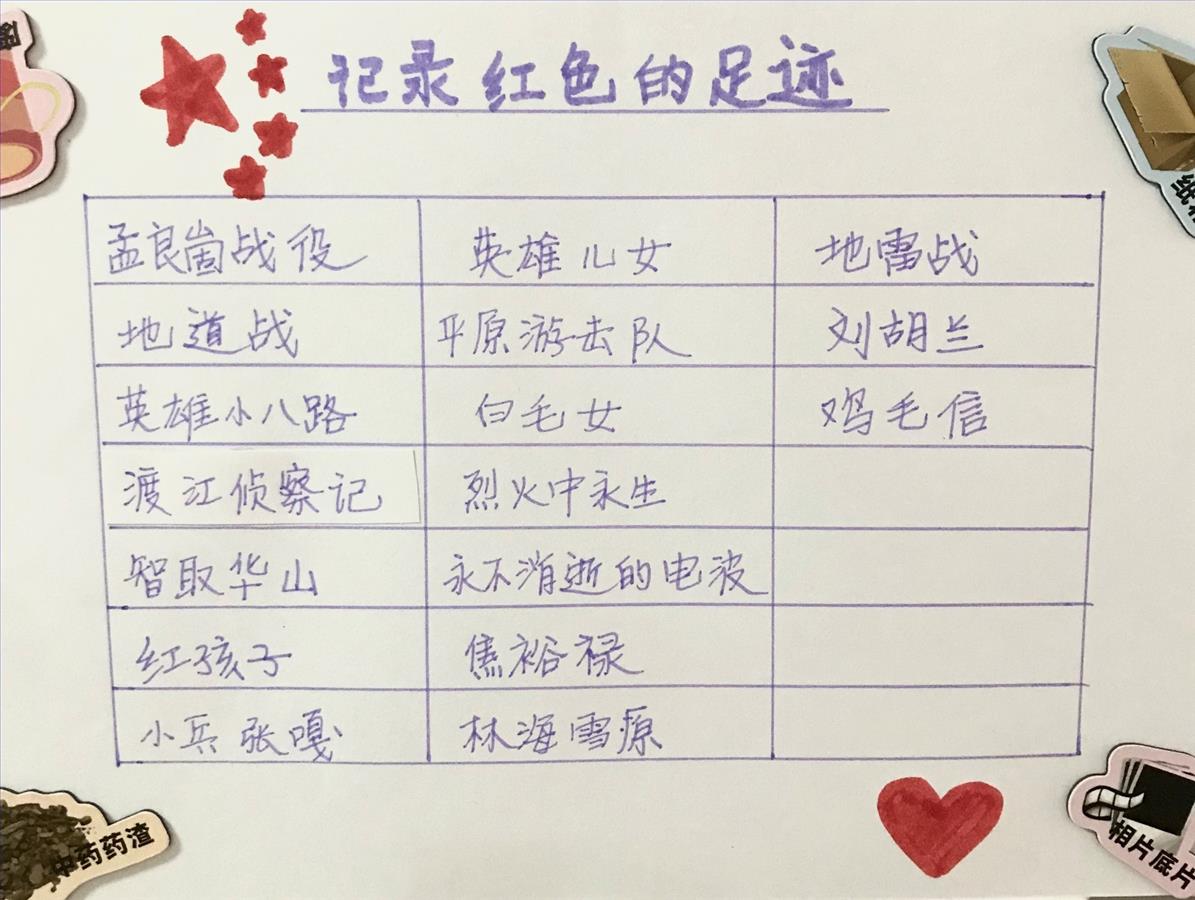 记录红色的足迹
孟良崮战役 英雄儿女 地雷战
地道战 平原游击队 刘胡兰
英雄小八路 白毛女 鸡毛信
渡江侦察记 烈火中永生
智取华山 永不消逝的电波
红孩子 焦裕禄
小兵张嘎 林海雪原
中药药渣
相片底片